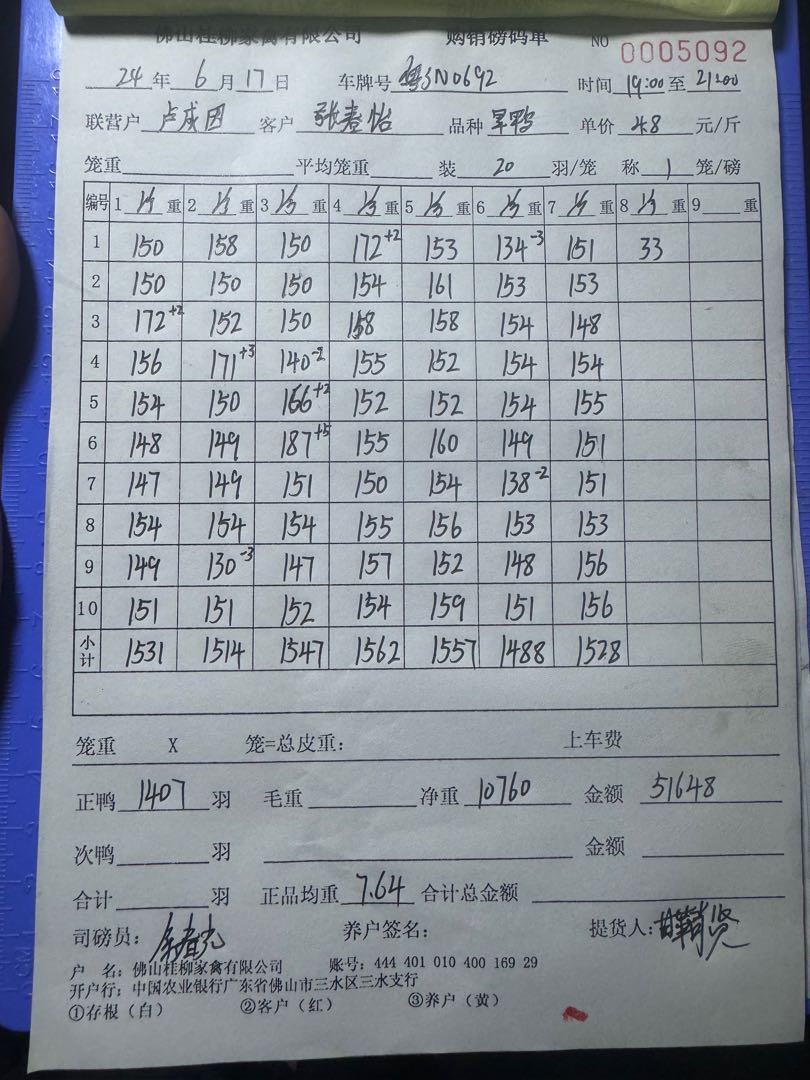 佛山桂柳家禽有限公司 购销磅码单 NO 0005092
24年6月17日 车牌号 粤SN0692 时间19:00至21:00
联营户 卢成因 客户 张春怡 品种 旱鸭 单价 4.8 元/斤
笼重 平均笼重 装 20 羽/笼 称 1 笼/磅
编号 1 重 2 重 3 重 4 重 5 重 6 重 7 重 8 重 9 重
1 150 158 150 172+2 153 134-3 151 33
2 150 150 150 154 161 153 153
3 172+2 152 150 158 158 154 148
4 156 171+3 140-2 155 152 154 154
5 154 150 166+2 152 152 154 155
6 148 149 187+5 155 160 149 151
7 147 149 151 150 154 138-2 151
8 154 154 154 155 156 153 153
9 149 130-3 147 157 152 148 156
10 151 151 152 154 159 151 156
小计 1531 1514 1547 1562 1557 1488 1528
笼重 X 笼=总皮重: 上车费
正鸭 1407 羽 毛重 净重 10760 金额 51648
次鸭 羽 金额
合计 羽 正品均重 7.64 合计总金额
司磅员: 养户签名: 提货人:
户 名: 佛山桂柳家禽有限公司 账号: 444 401 010 400 169 29
开户行: 中国农业银行广东省佛山市三水区三水支行
①存根(白) ②客户(红) ③养户(黄)